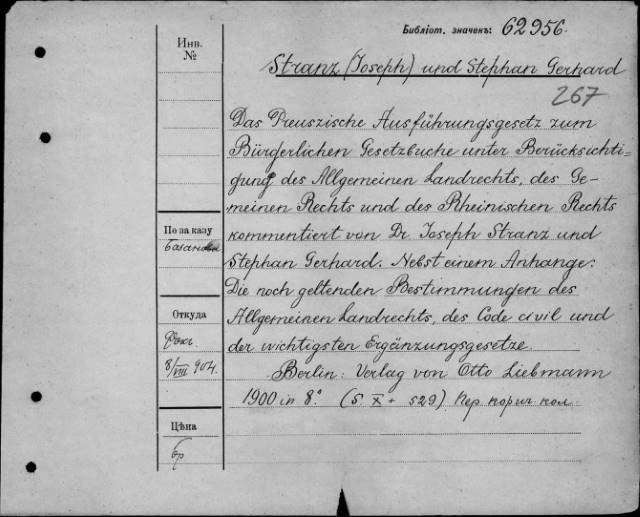 Библіот. значекъ: 62956.
Инв. №
Stranz (Joseph) und Stephan Gerhard
267
Das Preuszische Ausführungsgesetz zum
Bürgerlichen Gesetzbuche unter Berücksichti=
gung des Allgemeinen Landrechts, des Ge-
meinen Rechts und des Rheinischen Rechts
kommentiert von Dr Joseph Stranz und
Stephan Gerhard. Nebst einem Anhange:
Die noch geltenden Bestimmungen des
Allgemeinen Landrechts, des Code civil und
der wichtigsten Ergänzungsgesetze.
Berlin: Verlag von Otto Liebmann
1900 in 8º. (S. X + 529) Пер. корич. кол.
По заказу
Откуда
8/VIII 904.
Цѣна
бр